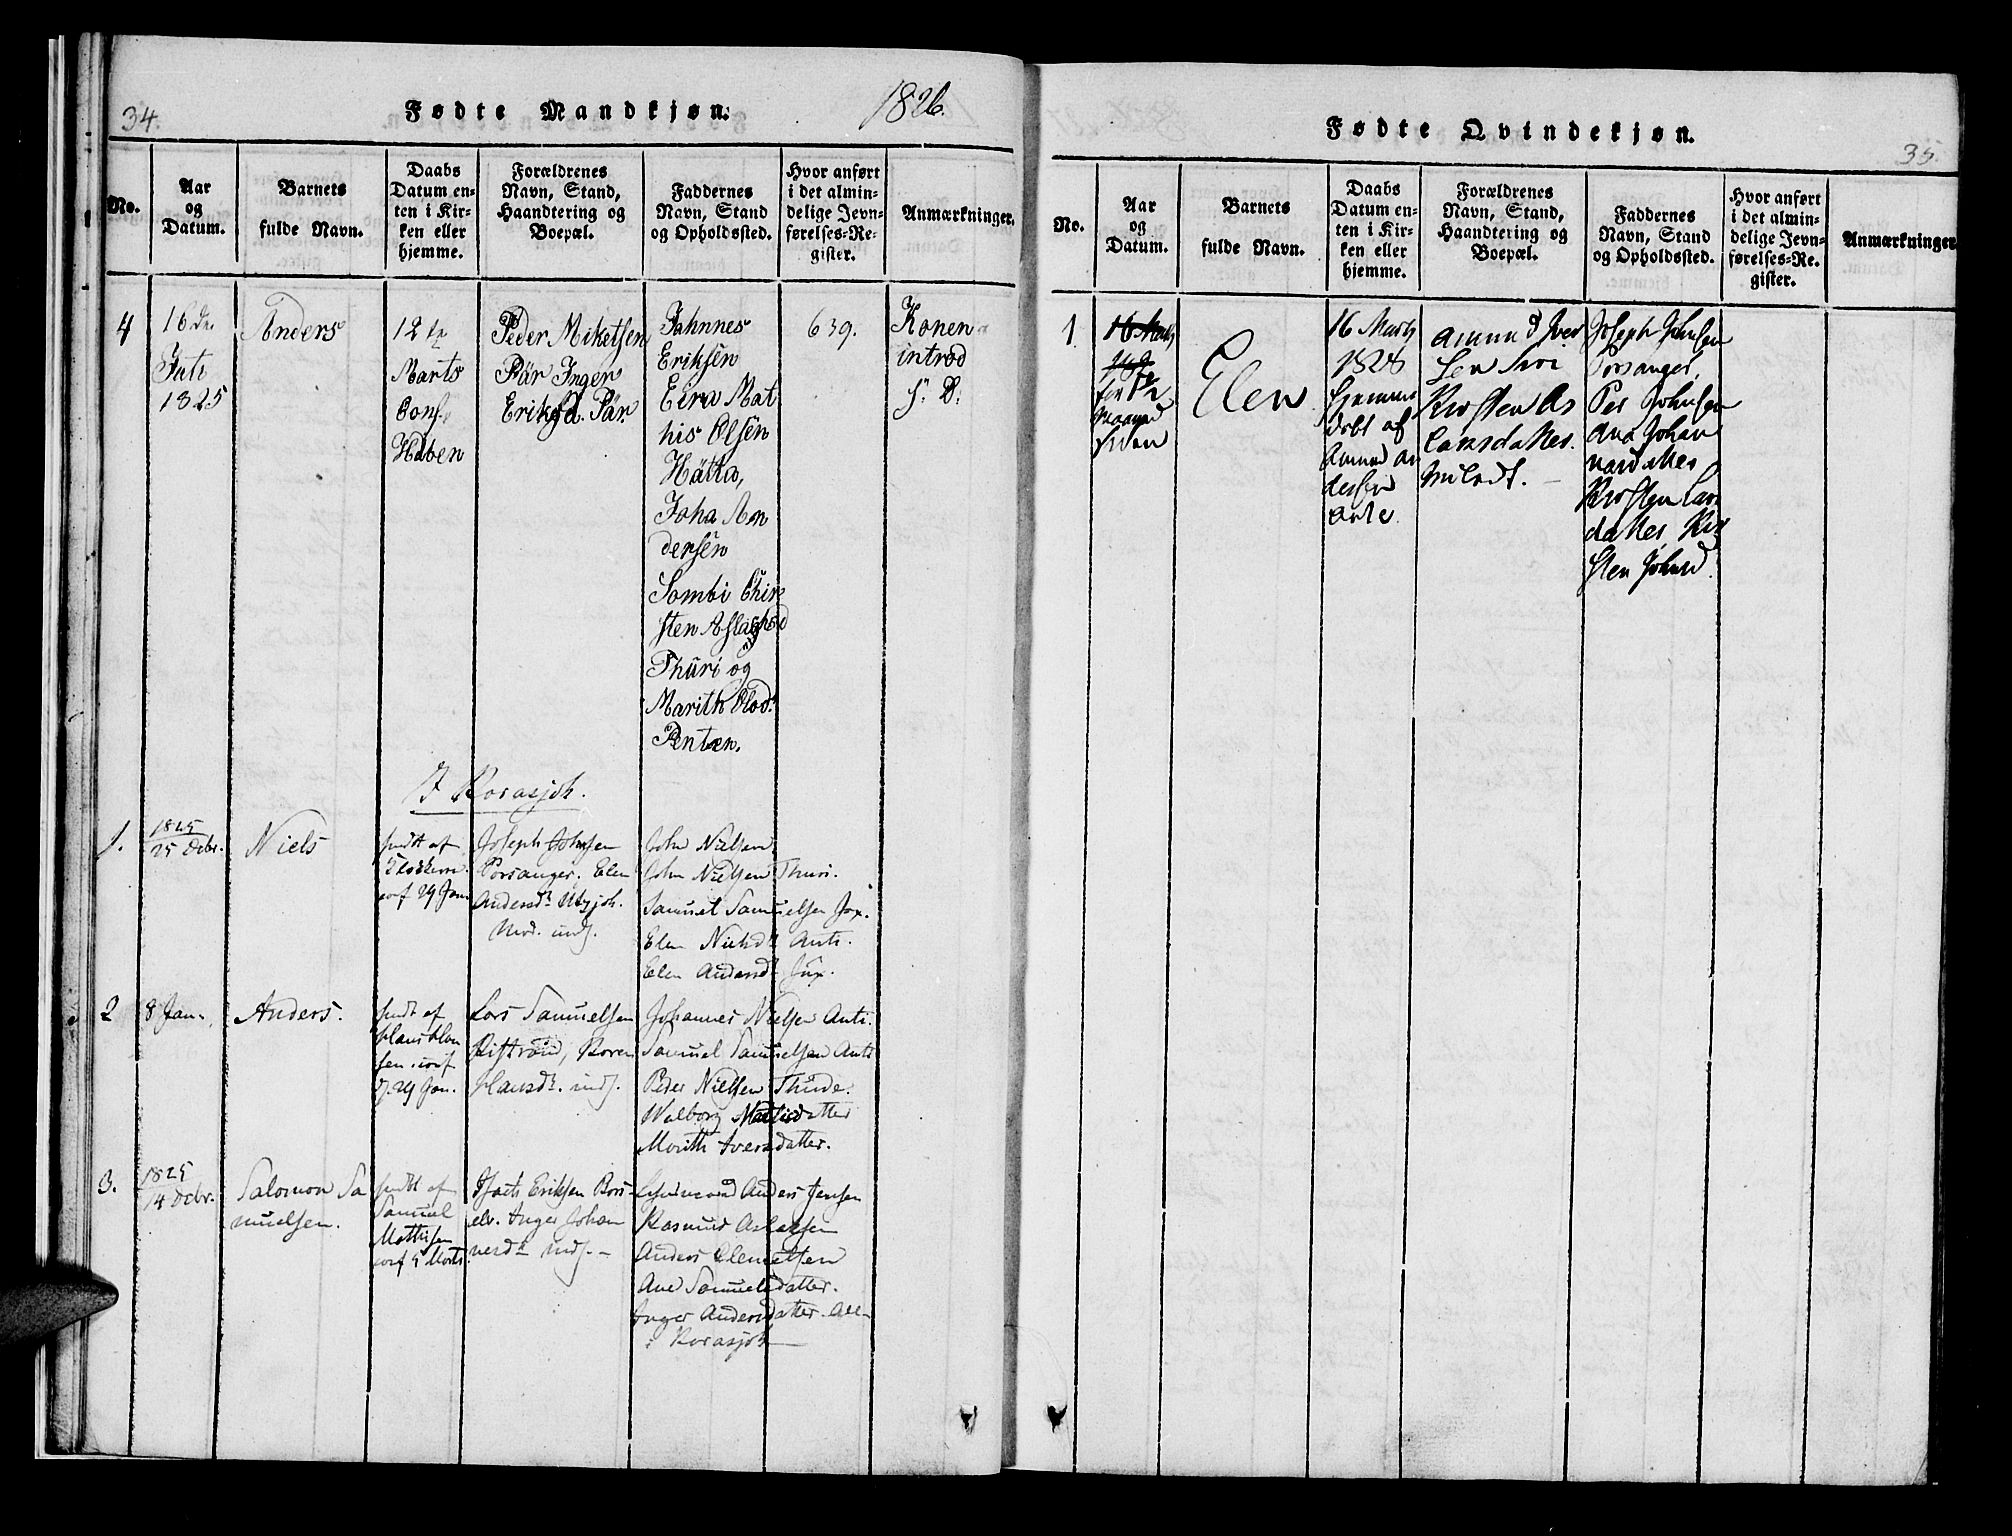 34.
Fødte Mandkjøn.
1826.
No.
Aar
og
Datum.
Barnets
fulde Navn.
Daabs
Datum en-
ten i Kir-
ken eller
hjemme.
Forældrenes
Navn, Stand,
Haandtering og
Boepæl.
Faddernes
Navn, Stand
og Opholdssted.
Hvor anført
i det almin-
delige Jevn-
førelses-Re-
gister.
Anmærkninger.
4
16 de
1825
Anders
12 te
Marts
Conf.
Peder Mikelsen
Pär Inger
Eriksd. Pär.
Johnnes
Eriksen
Eira Mat
his Olsen
Hätta,
Joha An
dersen
Sombi Chir
sten Aslags
Thuri og
Marith Olod.
Pentæn.
639.
Konen
introd
f. D.
I Korasjok.
1.
1825
25 Debr.
Niels
hmdt af
conf 29 Jan
Joseph Johnsen
Porsanger. Elen
Andersdr. Utzjoh.
Mod. inds.
John Nielsen
John Nielsen Thuri.
Samuel Samuelsen Jox.
Elen Nielsdr Anti.
Elen Andersdr Jux.
2
8 Jan.
Anders.
hmdt af
Hans Han
sen. conf
d. 29 Jan.
Lars Samuelsen
Riström, Karen
Hansdr. inds.
Johannes Nielsen Anti.
Samuel Samuelsen Anti
Peder Nielsen Thude.
Walborg Matisdatter
Marith Iversdatter.
3.
1825
14 Debr.
Salomon Sa
muelsen.
hmdt af
Samuel
Mathisen
conf 5 Marts
Isach Eriksen Bors-
elv. Inger Johan
nesdr inds. -
Anders Jensen
Rasmus Aslaksen
Anders Clemetsen
Ane Samuelsdatter.
Inger Andersdatter. Alle
i Korasjok
Fødte Qvindekjøn.
35.
No.
Aar
og
Datum.
Barnets
fulde Navn.
Daabs
Datum en-
ten i Kir-
ken eller
hjemme.
Forældrenes
Navn, Stand,
Haandtering og
Boepæl.
Faddernes
Navn, Stand
og Opholdssted.
Hvor anført
i det almin-
delige Jevn-
førelses-Re-
gister.
Anmærkninger.
1
16 Marts
siden
Elen
16 Marts
1828
hjemme
døbt af
Amund An
dersen
Amund Iver
sen
Kirsten As
laksdatter.
Joseph Johnsen
Porsanger,
Per Johnsen
Ana Johan
nasdatter
Kirsten Lars
datter Kir
sten Johnsd.